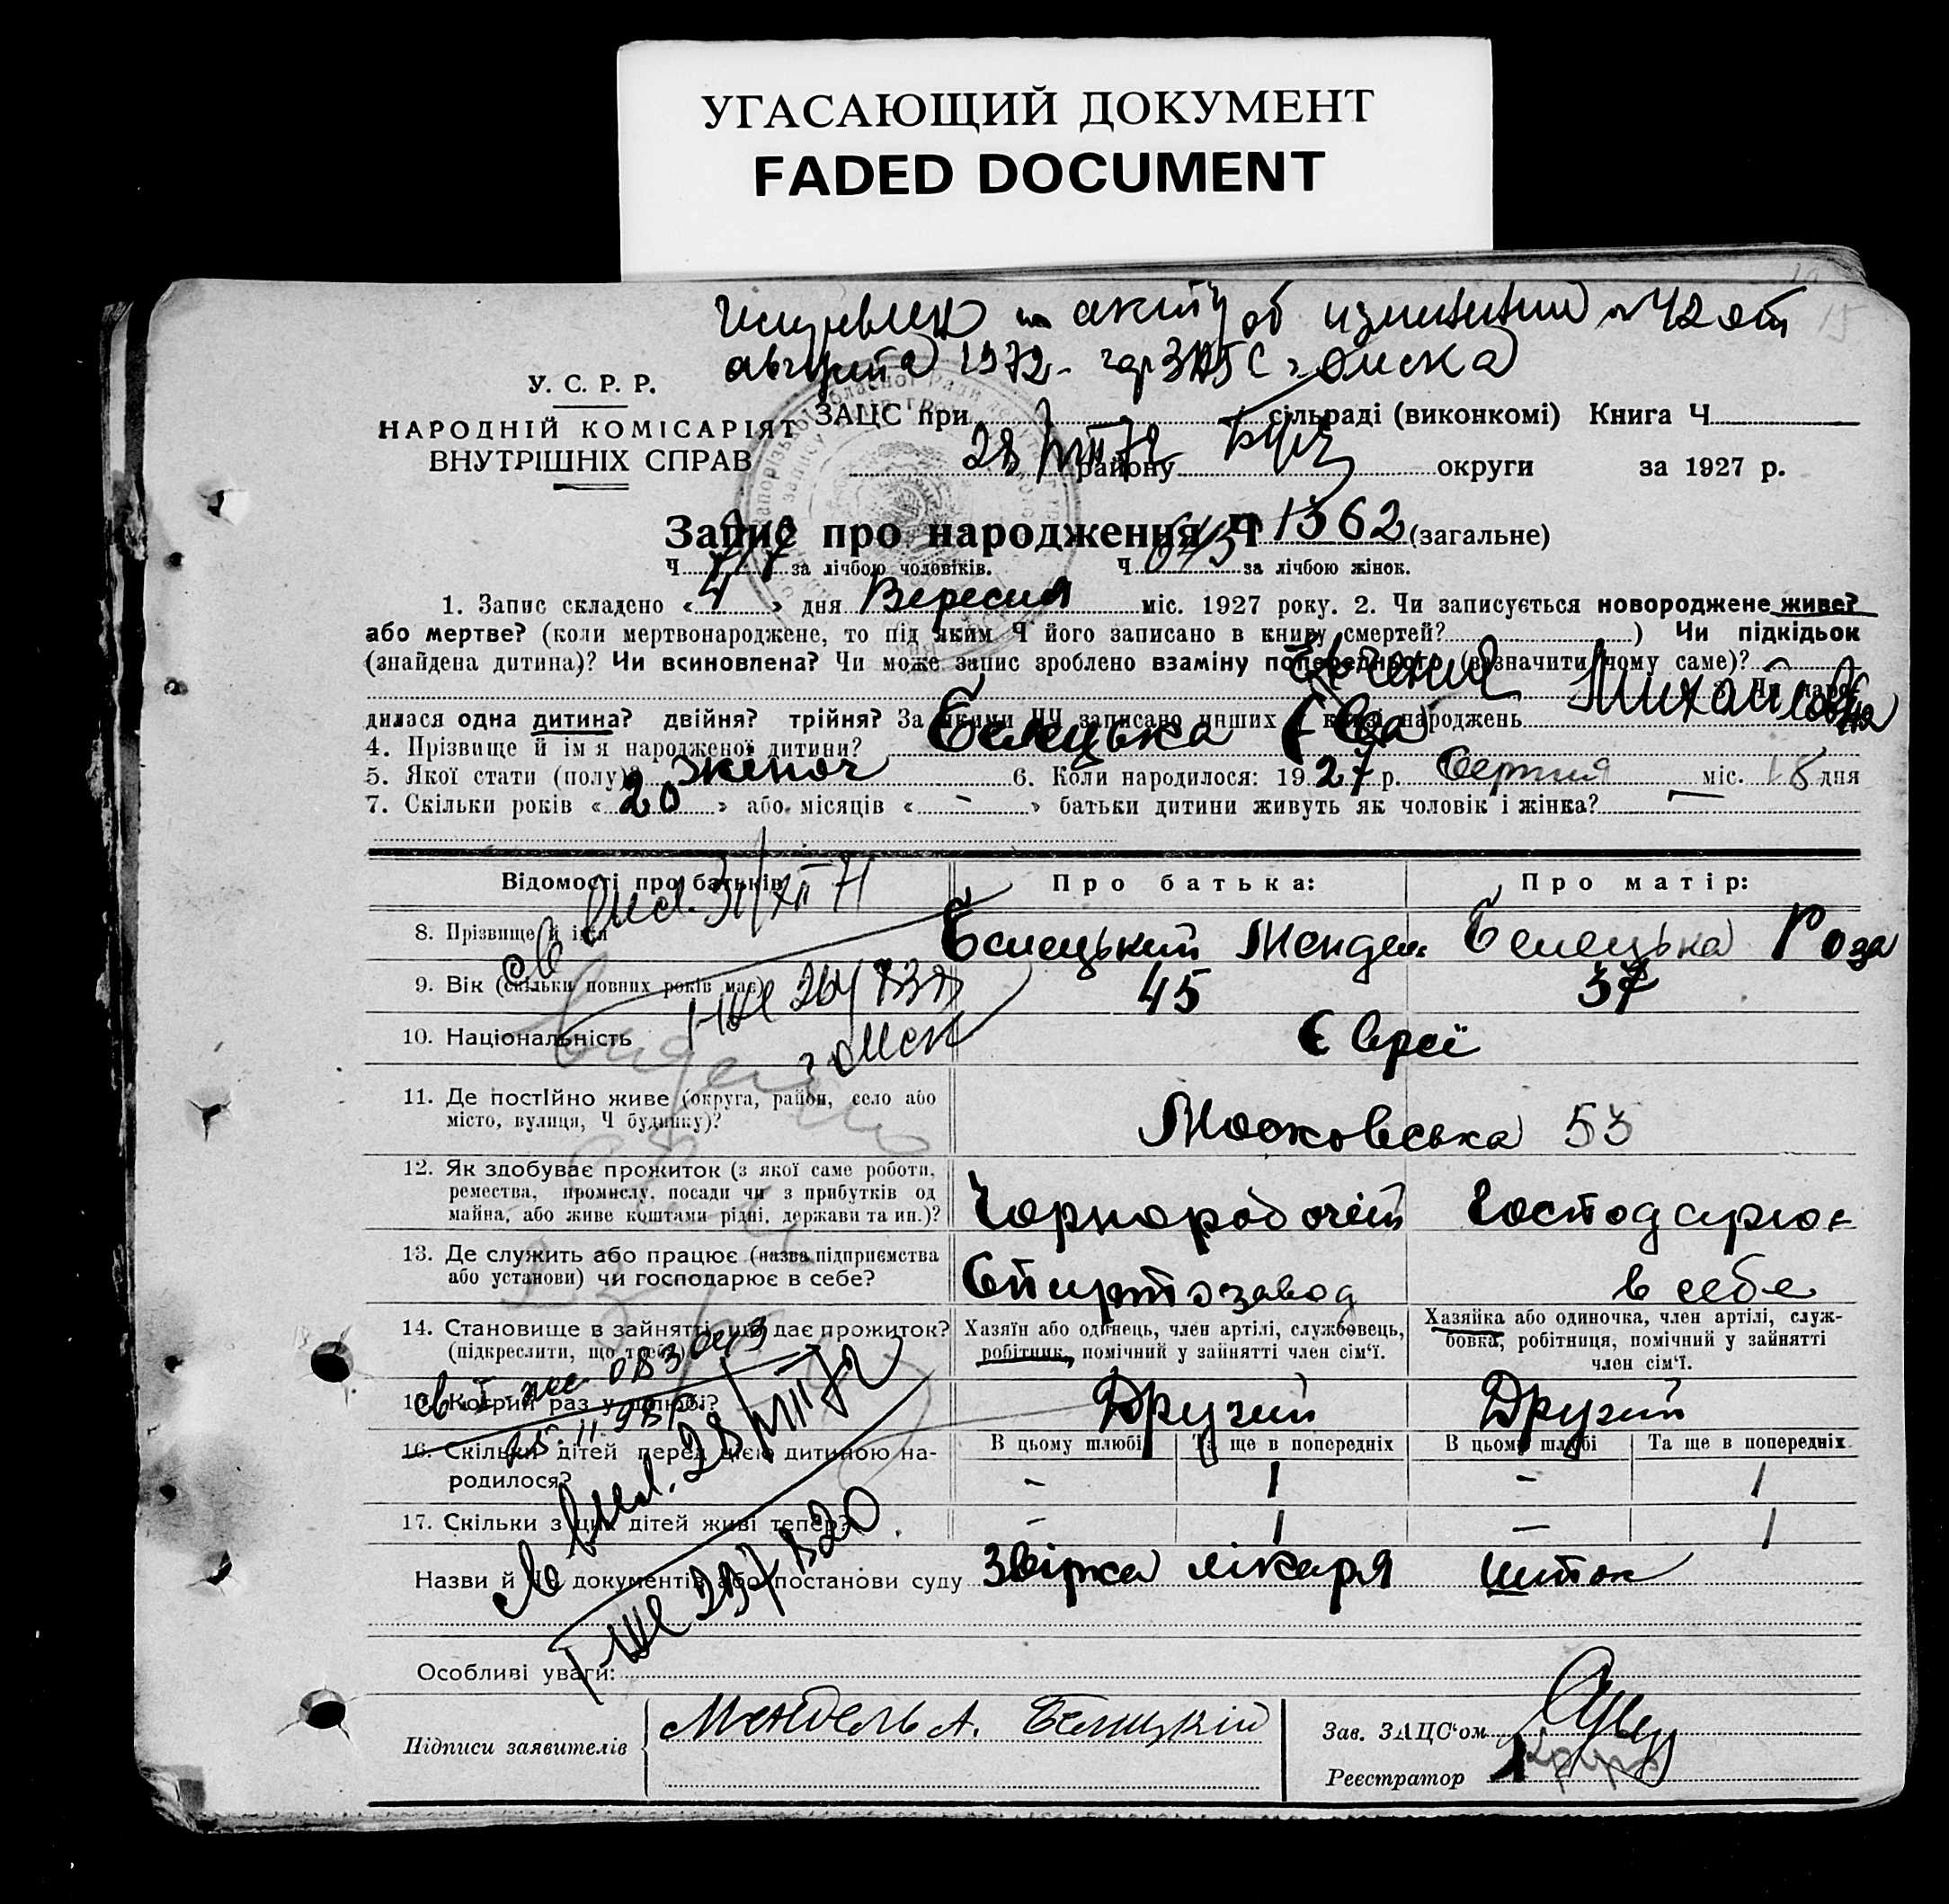 УГАСАЮЩИЙ ДОКУМЕНТ
FADED DOCUMENT
акту об изменении № 42 от
августа 1972 г. гор ЗАГС г. Омска
У. С. Р. Р.
НАРОДНІЙ КОМІСАРІЯТ
ВНУТРІШНІХ СПРАВ
ЗАЦС при сільраді (виконкомі) Книга Ч
28/VIII 72 району округи за 1927 р.
Запис про народження Ч 1362 (загальне)
Ч за лічбою чоловіків. Ч 645 за лічбою жінок.
1. Запис складено « 4 » дня Вересня міс. 1927 року. 2. Чи записується новороджене живе?
або мертве? (коли мертвонароджене, то під яким Ч його записано в книгу смертей? ) Чи підкідьок
(знайдена дитина)? Чи всиновлена? Чи може запис зроблено взаміну попереднього (зазначити чому саме)?
Евгения Михайловна
дилася одна дитина? двійня? трійня? За якими ЧЧ записано инших в книзі народжень
4. Прізвище й ім'я народженої дитини? Белецька Єва
5. Якої стати (полу)? жіноч 6. Коли народилося: 1927 р. Серпня міс. 18 дня
7. Скільки років « 20 » або місяців « - » батьки дитини живуть як чоловік і жінка?
Відомості про батьків Про батька: Про матір:
31/XII 71
8. Прізвище й ім'я Белецький Мендель Белецька Роза
9. Вік (скільки повних років має) 45 37
10. Національність Євреї
г. Омск
11. Де постійно живе (округа, район, село або
місто, вулиця, Ч будинку)? Московська 53
12. Як здобуває прожиток (з якої саме роботи,
ремества, промислу, посади чи з прибутків од
майна, або живе коштами рідні, держави та ин.)? Чорноробочій Господарює
13. Де служить або працює (назва підприємства
або установи) чи господарює в себе? Спиртозавод в себе
14. Становище в зайнятті, що дає прожиток?
(підкреслити, що треба)
Хазяїн або одинець, член артілі, службовець,
робітник, помічний у зайнятті член сім'ї.
Хазяйка або одиночка, член артілі, служ-
бовка, робітниця, помічний у зайнятті
член сім'ї.
15. Котрий раз у шлюбі? Другий Другий
16. Скільки дітей перед цією дитиною на-
родилося?
В цьому шлюбі Та ще в попередніх В цьому шлюбі Та ще в попередніх
- 1 - 1
17. Скільки з цих дітей живі тепер? - 1 - 1
28/VIII 72
Назви й ЧЧ документів або постанови суду Звірка лікаря
Особливі уваги:
Підписи заявителів Мендель А. Белицкій
Зав. ЗАЦС'ом
Реєстратор